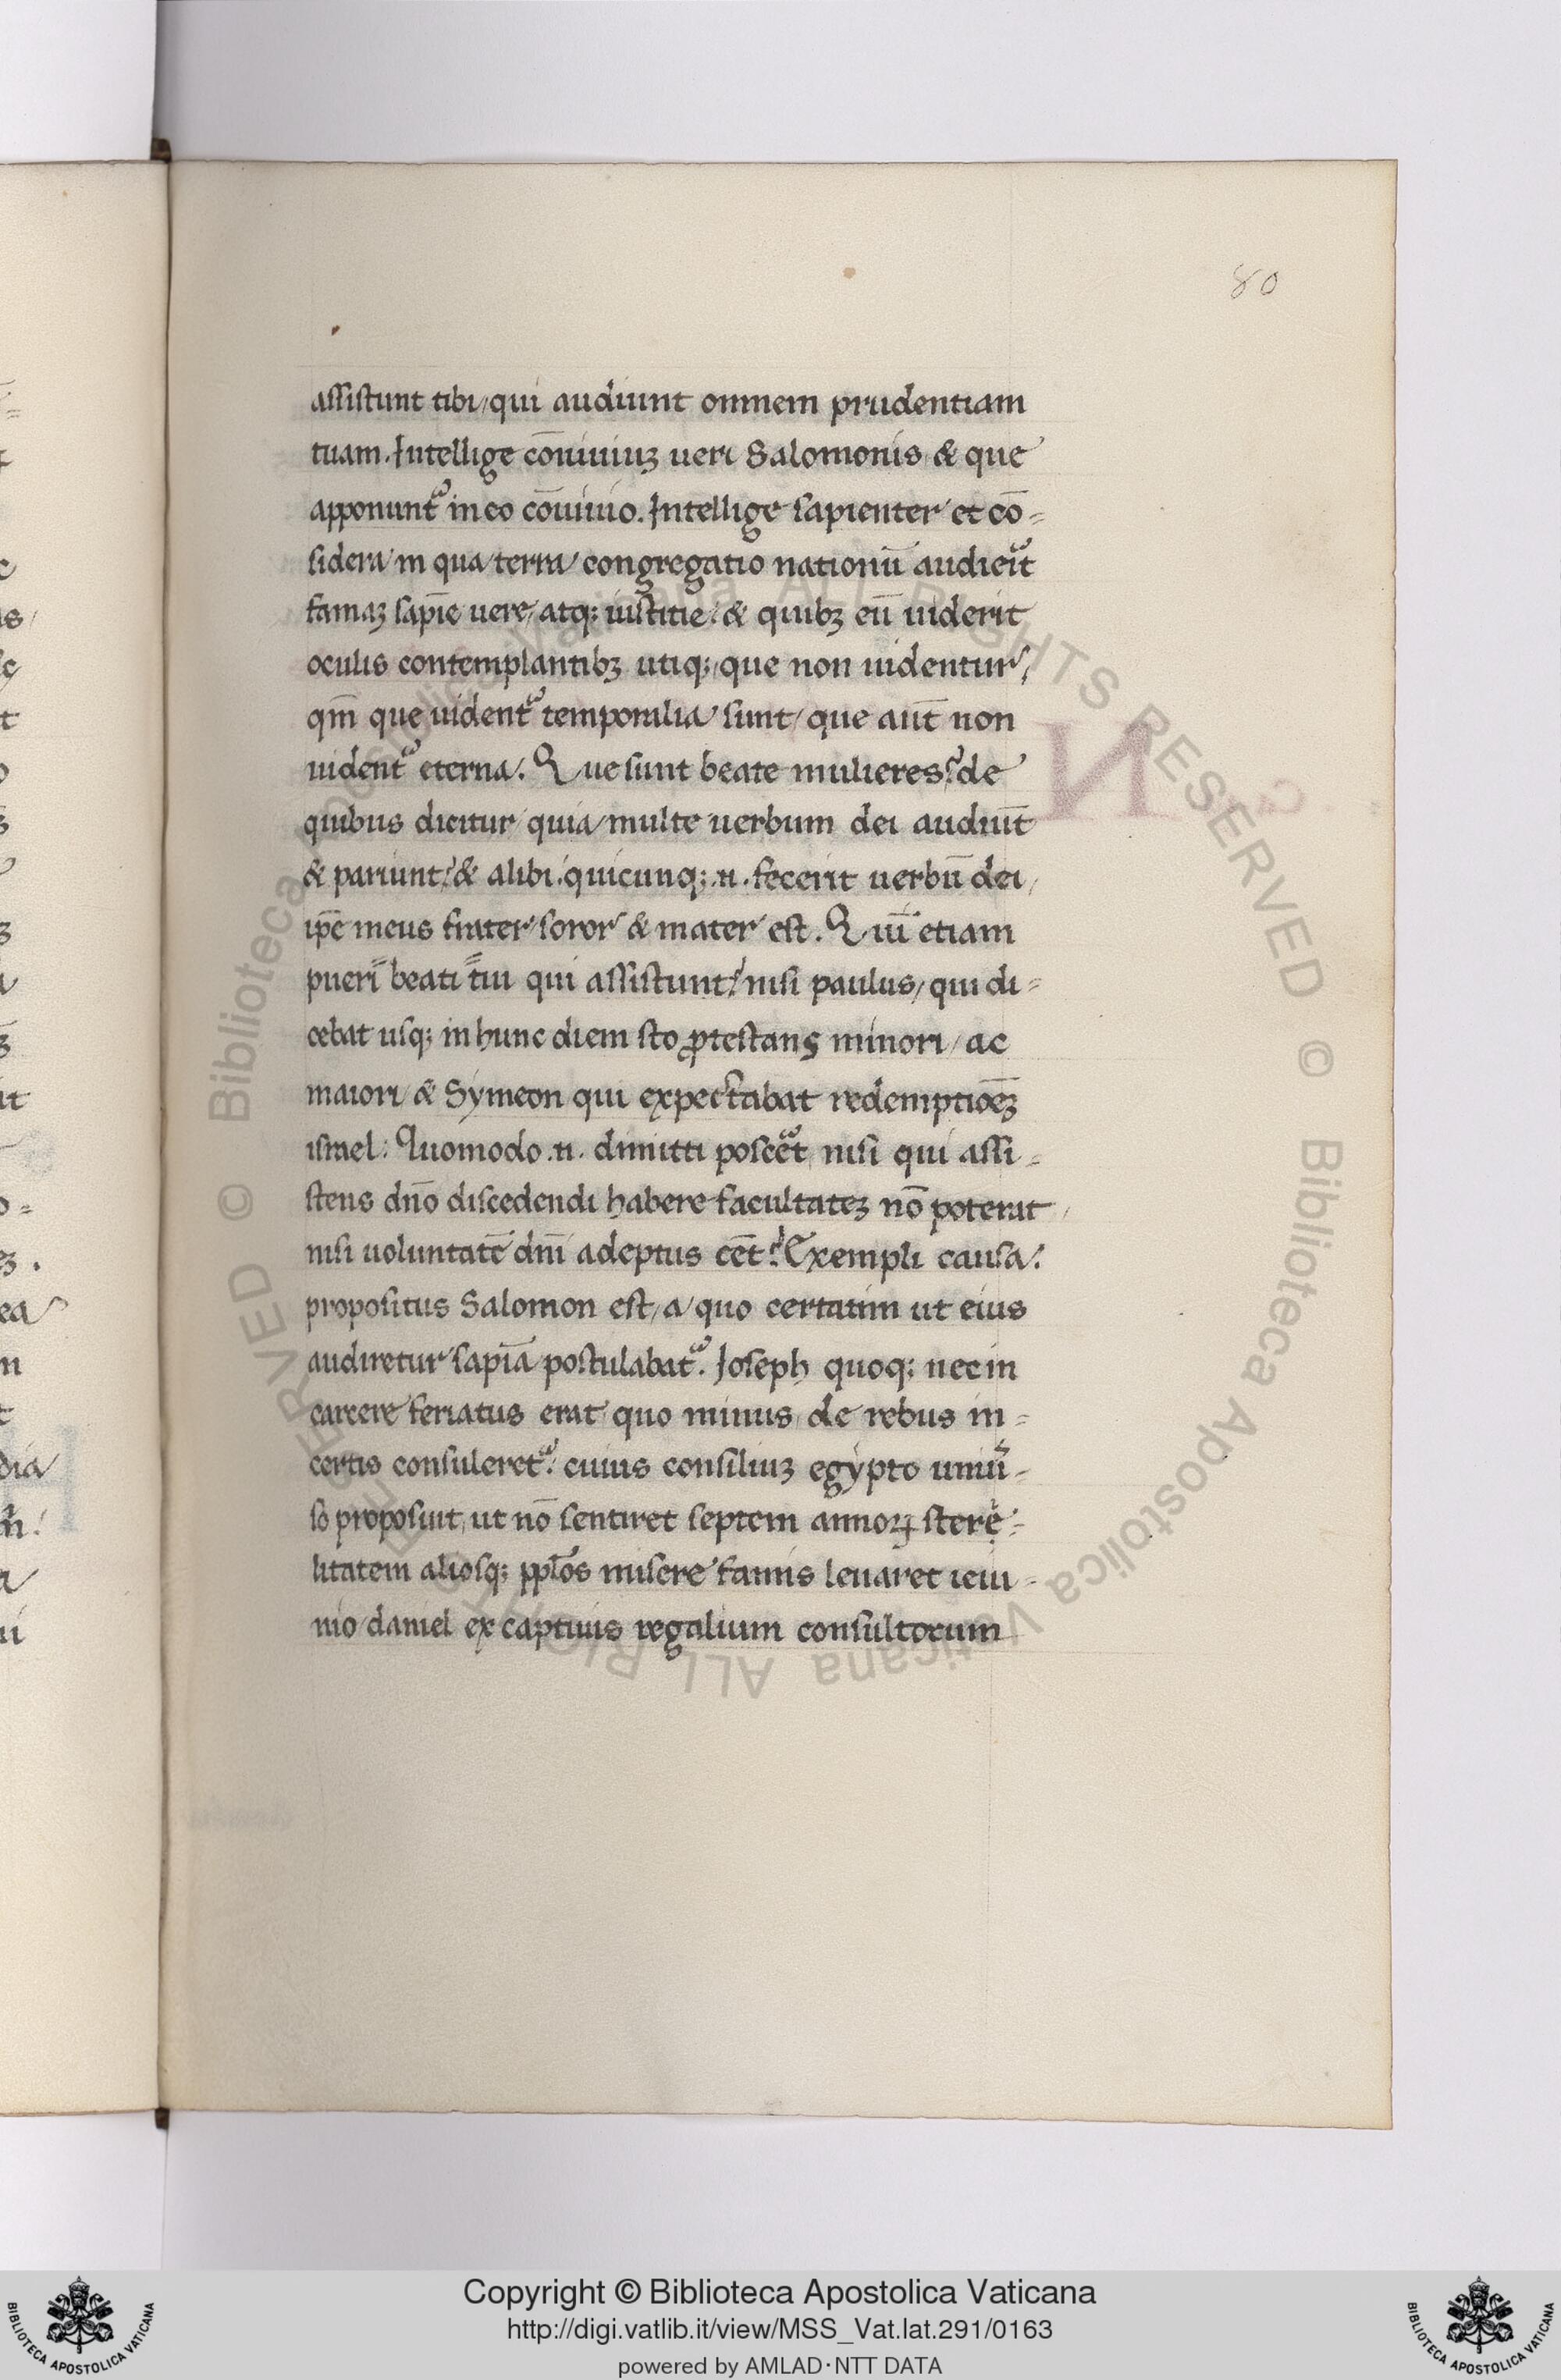 80
assistunt tibi/ qui audiunt omnem prudentiam
tuam. Intellige cōuiuiuꝫ ueri Salomonis & que
apponunt᷑ in eo cōuiuio. Intellige sapienter et cō=
sidera/ in qua terra/ congregatio nationū audieīt᷑
famaꝫ sapīe uere/ atq; iustitie/ & quibꝫ eū uiderit
oculis contemplantibꝫ utiq; que non uidentur/
qm̄ que uident᷑ temporalia sunt/ que aūt non
uident᷑ eterna. Que sunt beate mulieres? de
quibus dicitur quia multe uerbum dei audiūt
& pariunt? & alibi. quicunq; .n. fecerit uerbū dei/
ip̄e meus frater soror & mater est. Qui ī etiam
pueri beati tui qui assistunt? nisi paulus/ qui di=
cebat usq; in hunc diem sto ꝓtestans minori/ ac
maiori/ & Symeon qui expectabat redemptiōeꝫ
israel: Quomodo .n. dimitti poscet᷑ nisi qui assi=
stens dn̄o discedendi habere facultateꝫ nō poterat/
nisi uoluntatē dn̄i adeptus eēt? Exempli causa.
propositus Salomon est/ a quo certatim ut eius
audiretur sapīa postulabat᷑. Ioseph quoq; nec in
carcere feriatus erat quo minus de rebus in=
certis consuleret᷑. cuius consiliuꝫ egypto uniū=
so proposuit, ut nō sentiret septem annoꝝ stere=
litatem aliosq; pplōs misere famis leuaret ieiu=
nio/ daniel ex captiuis regalium consultorum
Copyright © Biblioteca Apostolica Vaticana
http://digi.vatlib.it/view/MSS_Vat.lat.291/0163
powered by AMLAD·NTT DATA